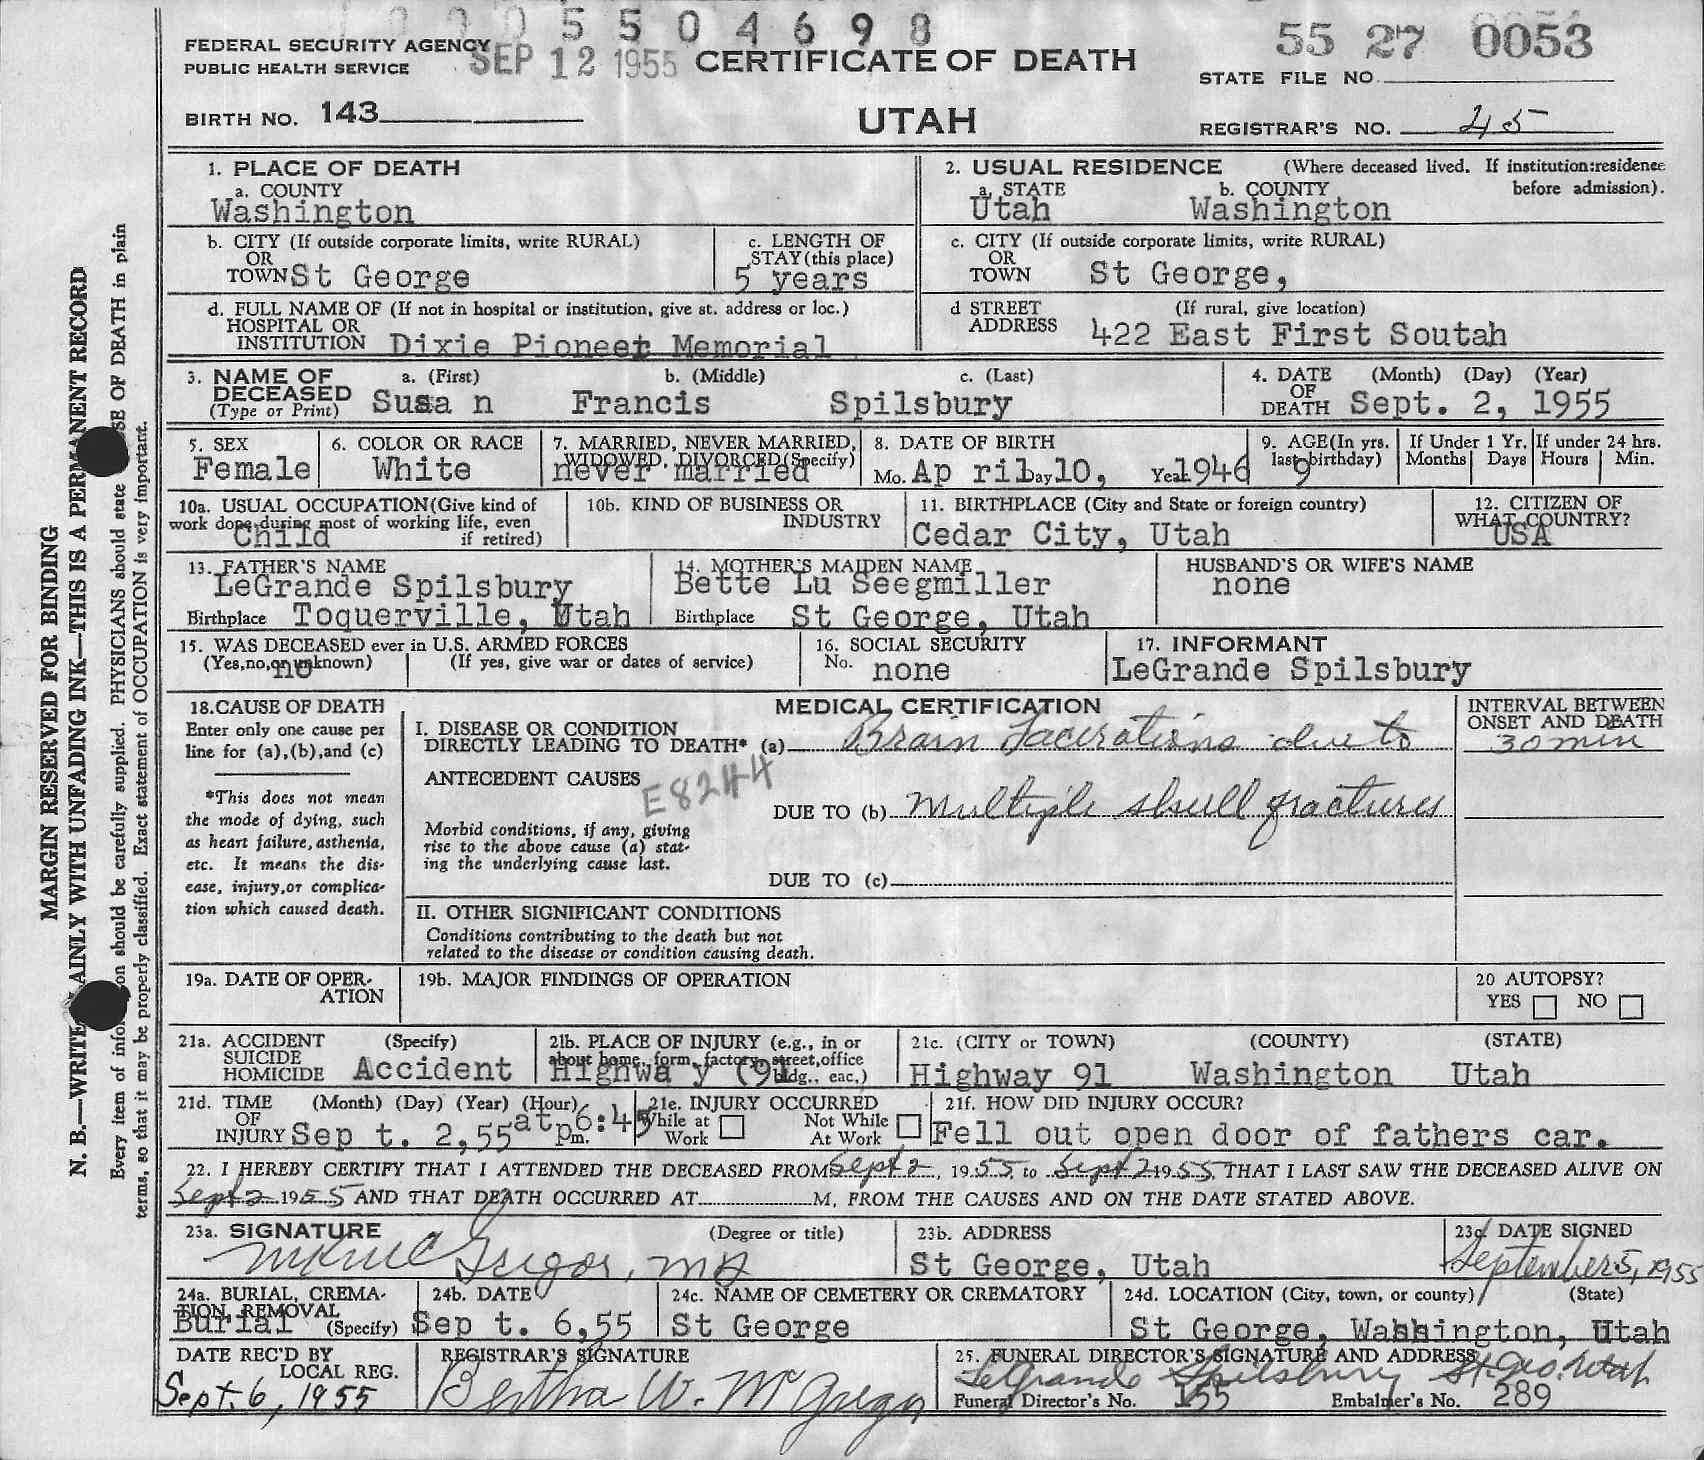 0005504698
55 27 0053
FEDERAL SECURITY AGENCY
PUBLIC HEALTH SERVICE
SEP 12 1955
CERTIFICATE OF DEATH
STATE FILE NO.
BIRTH NO. 143
UTAH
REGISTRAR'S NO. 45
1. PLACE OF DEATH
a. COUNTY
Washington
2. USUAL RESIDENCE (Where deceased lived. If institution:residence before admission).
a. STATE b. COUNTY
Utah Washington
b. CITY (If outside corporate limits, write RURAL)
OR
TOWN St George
c. LENGTH OF
STAY (this place)
5 years
c. CITY (If outside corporate limits, write RURAL)
OR
TOWN St George,
d. FULL NAME OF (If not in hospital or institution, give st. address or loc.)
HOSPITAL OR
INSTITUTION Dixie Pioneer Memorial
d STREET (If rural, give location)
ADDRESS 422 East First Soutah
3. NAME OF a. (First) b. (Middle) c. (Last)
DECEASED
(Type or Print) Susa n Francis Spilsbury
4. DATE (Month) (Day) (Year)
OF
DEATH Sept. 2, 1955
5. SEX
Female
6. COLOR OR RACE
White
7. MARRIED, NEVER MARRIED,
WIDOWED, DIVORCED (Specify)
never married
8. DATE OF BIRTH
Mo. Ap ril Day 10, Year 1946
9. AGE (In yrs.
last birthday)
9
If Under 1 Yr.
Months Days
If under 24 hrs.
Hours Min.
10a. USUAL OCCUPATION (Give kind of
work done during most of working life, even
if retired)
Child
10b. KIND OF BUSINESS OR
INDUSTRY
11. BIRTHPLACE (City and State or foreign country)
Cedar City, Utah
12. CITIZEN OF
WHAT COUNTRY?
USA
13. FATHER'S NAME
LeGrande Spilsbury
Birthplace Toquerville, Utah
14. MOTHER'S MAIDEN NAME
Bette Lu Seegmiller
Birthplace St George, Utah
HUSBAND'S OR WIFE'S NAME
none
15. WAS DECEASED ever in U.S. ARMED FORCES
(Yes, no, or unknown) (If yes, give war or dates of service)
no
16. SOCIAL SECURITY
No. none
17. INFORMANT
LeGrande Spilsbury
18. CAUSE OF DEATH
Enter only one cause per
line for (a), (b), and (c)
*This does not mean
the mode of dying, such
as heart failure, asthenia,
etc. It means the dis-
ease, injury, or complica-
tion which caused death.
MEDICAL CERTIFICATION
I. DISEASE OR CONDITION
DIRECTLY LEADING TO DEATH* (a) Brain Lacerations due to
INTERVAL BETWEEN
ONSET AND DEATH
30 min
ANTECEDENT CAUSES
E8244
DUE TO (b) Multiple skull fractures
Morbid conditions, if any, giving
rise to the above cause (a) stat-
ing the underlying cause last.
DUE TO (c)
II. OTHER SIGNIFICANT CONDITIONS
Conditions contributing to the death but not
related to the disease or condition causing death.
19a. DATE OF OPER-
ATION
19b. MAJOR FINDINGS OF OPERATION
20 AUTOPSY?
YES NO
21a. ACCIDENT (Specify)
SUICIDE
HOMICIDE Accident
21b. PLACE OF INJURY (e.g., in or
about home, form, factory, street, office
bldg., eac.)
Highwa y (91
21c. (CITY or TOWN) (COUNTY) (STATE)
Highway 91 Washington Utah
21d. TIME (Month) (Day) (Year) (Hour)
OF
INJURY Sep t. 2,55 at 6:45 pm.
21e. INJURY OCCURRED
While at Work
Not While At Work
21f. HOW DID INJURY OCCUR?
Fell out open door of fathers car.
22. I HEREBY CERTIFY THAT I ATTENDED THE DECEASED FROM Sept 2, 1955, to Sept 2 1955, THAT I LAST SAW THE DECEASED ALIVE ON
Sept 2 1955 AND THAT DEATH OCCURRED AT M, FROM THE CAUSES AND ON THE DATE STATED ABOVE.
23a. SIGNATURE (Degree or title)
McGregor, MD
23b. ADDRESS
St George, Utah
23c. DATE SIGNED
September 5, 1955
24a. BURIAL, CREMA-
TION, REMOVAL
(Specify)
Burial
24b. DATE
Sep t. 6,55
24c. NAME OF CEMETERY OR CREMATORY
St George
24d. LOCATION (City, town, or county) (State)
St George, Washington, Utah
DATE REC'D BY
LOCAL REG.
Sept. 6, 1955
REGISTRAR'S SIGNATURE
Bertha W. McGregor
25. FUNERAL DIRECTOR'S SIGNATURE AND ADDRESS
LeGrande Spilsbury St. Geo. Utah
Funeral Director's No. 155 Embalmer's No. 289
MARGIN RESERVED FOR BINDING
N. B.—WRITE AINLY WITH UNFADING INK—THIS IS A PERMANENT RECORD
Every item of infor on should be carefully supplied. PHYSICIANS should state SE OF DEATH in plain
terms, so that it may be properly classified. Exact statement of OCCUPATION is very important.